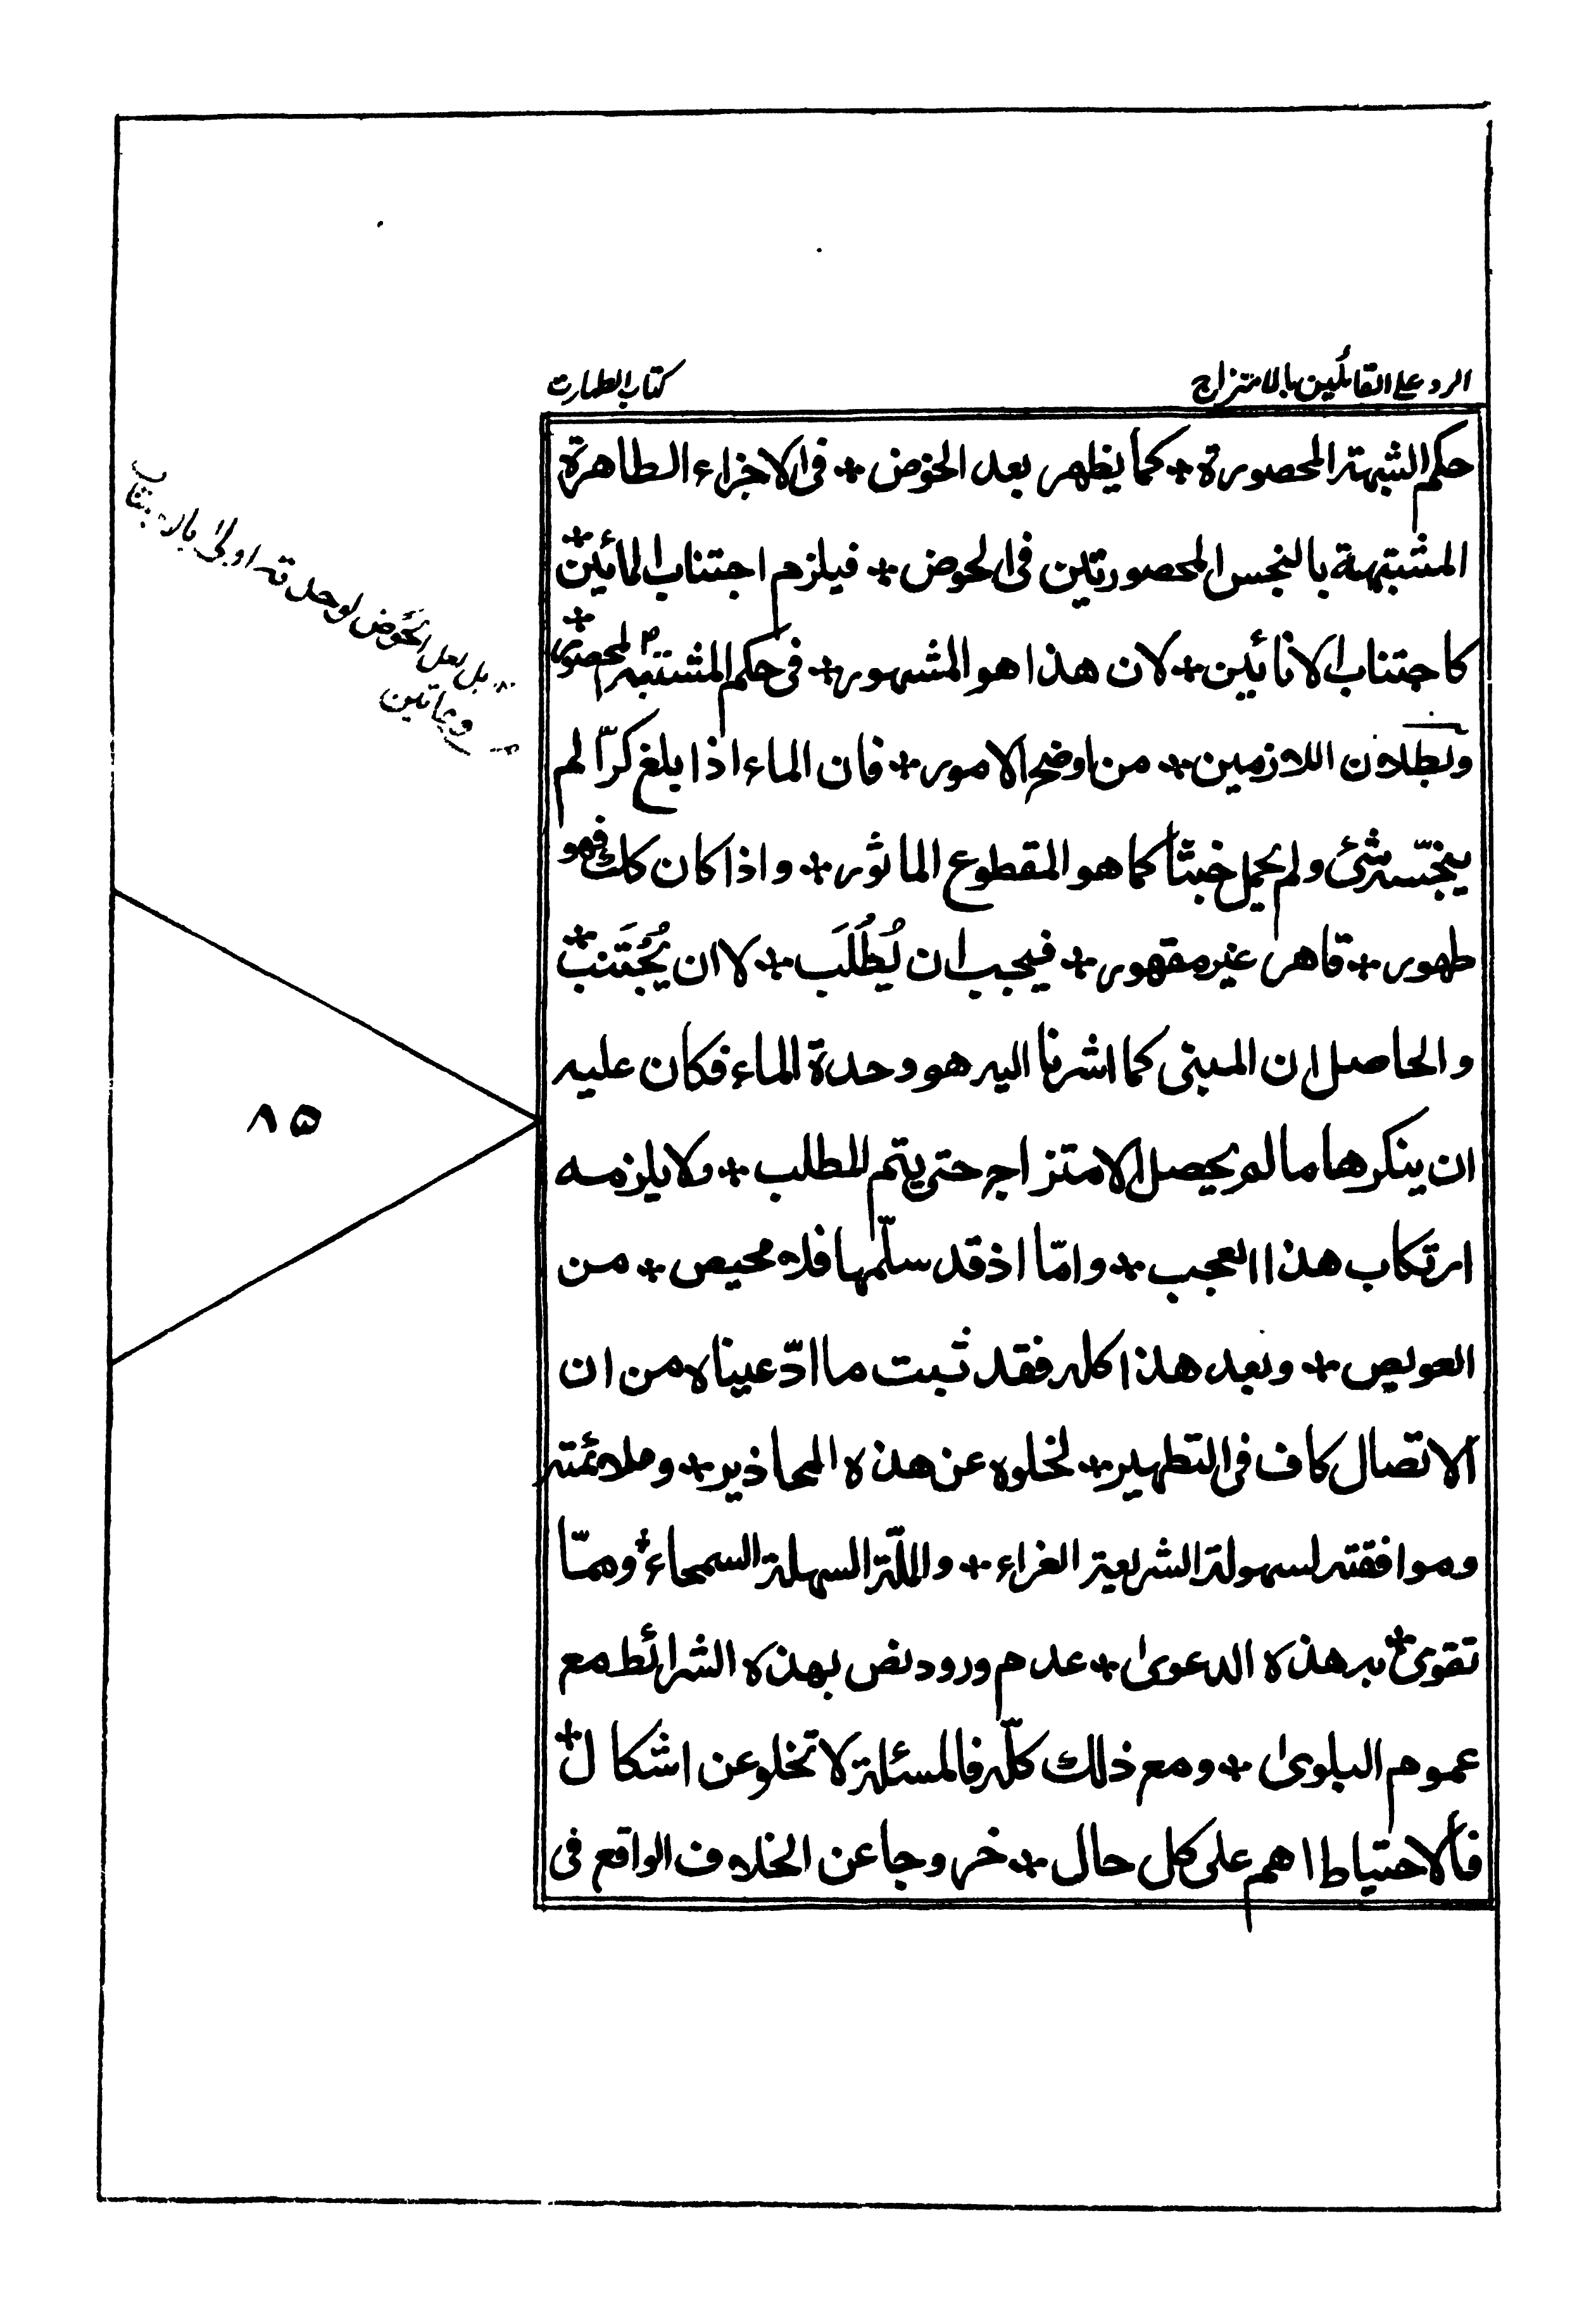 الرد على القائلين بالامتزاج
كتاب الطهارت
حكم الشبهة المحصورة * كما يظهر بعد الخوض * فى الاجزاء الطاهرة
المشتبهة بالنجس المحصورتين فى الحوض * فيلزم اجتناب المائين *
كاجتناب الانائين * لان هذا هو المشهور * فى حكم المشتبه المحصور *
وبطلان اللازمين * من اوضح الامور * فان الماء اذا بلغ كرّا لم
ينجّسه شئ ولم يحمل خبثا كما هو المقطوع الماثور * واذا كان كك فهو
طهور * قاهر غير مقهور * فيجب ان يُطُلَب * لا ان يُجُتَنب *
والحاصل ان المبنى كما اشرنا اليه هو وحدة الماء فكان عليه
ان ينكرها ما لم يحصل الامتزاج حتى يتم المطلب * ولا يلزمه
ارتكاب هذا العجب * وامّا اذ قد سلّمها فلا محيص * من
العويص * وبعد هذا كله فقد ثبت ما ادّعيناه من ان
الاتصال كاف فى التطهير * لخلوه عن هذه المحاذير * وملائمته
وموافقته لسهولة الشريعة الغراء * والملّة السهلة السمحاء * وممّا
تقوىٰ به هذه الدعوىٰ * عدم ورود نص بهذه الشرائط مع
عموم البلوىٰ * ومع ذلك كلّه فالمسئلة لا تخلو عن اشكال *
فالاحتياط اهم على كل حال * خروجا عن الخلاف الواقع فى
بل لعل الحَوض لوحدته اولىٰ بالاجتناب
٨٥